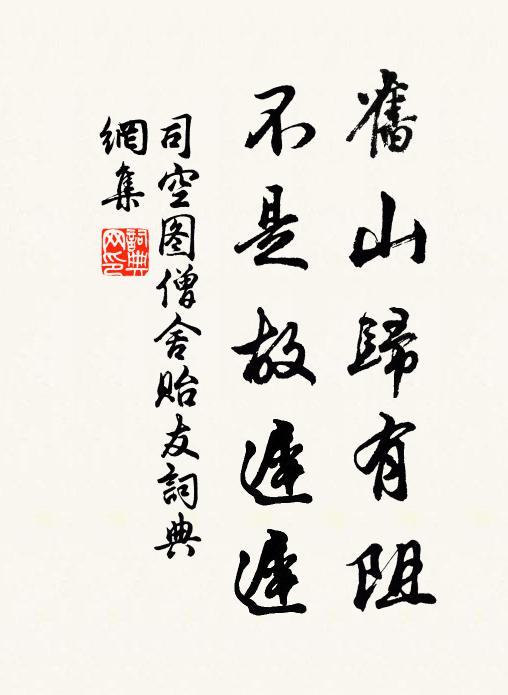 舊山歸有阻
不是故遲遲
司空图僧舍貽友詞典
網集
詞典網印